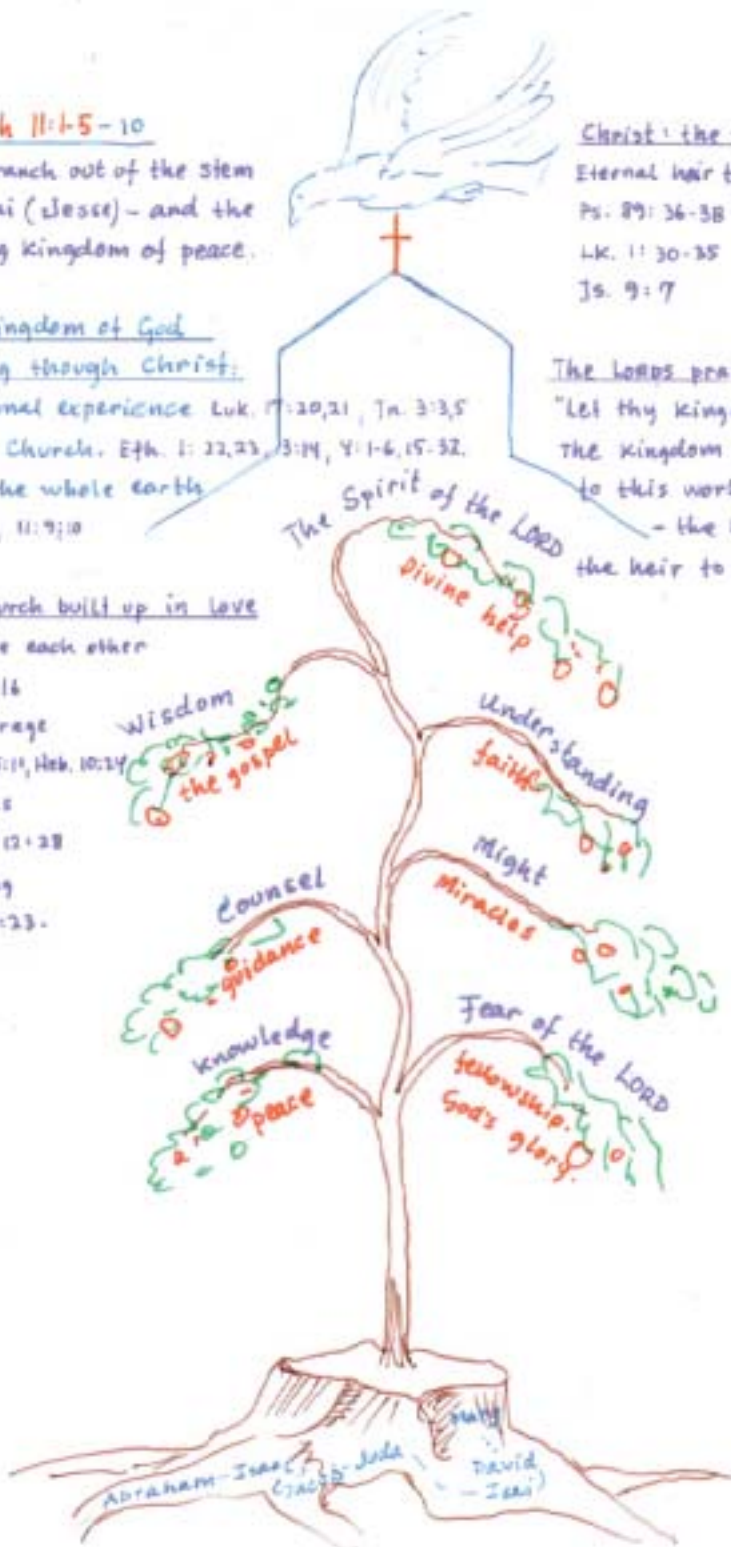 h 11:1-5-10
ranch out of the stem
ai (Jesse) - and the
g kingdom of peace.
ingdom of God
g though Christ:
nal experience Luk. 17:20,21, Jn. 3:3,5
Church. Eth. 1: 22,23, 3:14, 4:1-6,15-32.
he whole earth
, 11:9;10
urch built up in Love
e each other
16
rage
:11, Heb. 10:24
s
12:28
9
:23.
Christ: the
Eternal heir t
Ps. 89: 36-38
Lk. 1: 30-35
Js. 9:7
The LORDS pra
"Let thy king
The kingdom
to this wor
- the
the heir to
The Spirit of the LORD
Divine help
Wisdom
the gospel
Understanding
faith
Might
Miracles
Counsel
guidance
Knowledge
peace
Fear of the LORD
fellowship.
God's glory.
Mary
Abraham - Isaac
(Jacob - Juda
David
- Isai)